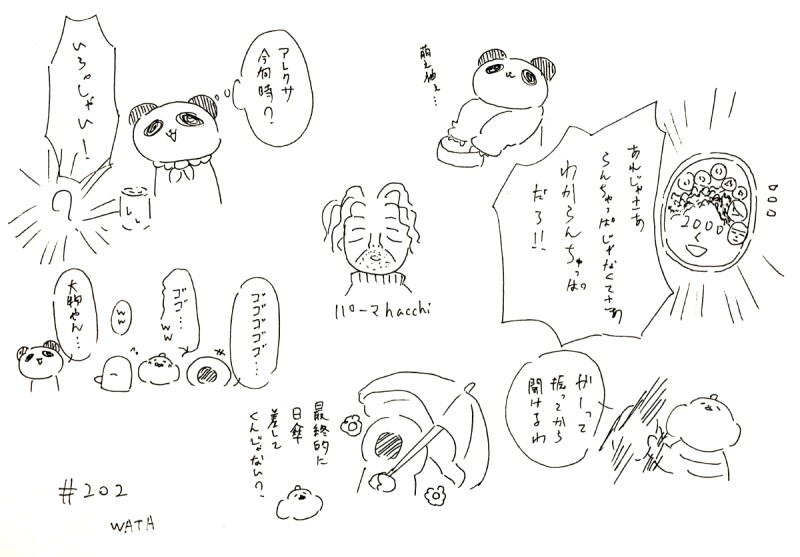 いらっしゃい!
アレクサ
今何時?
萌え袖え…
あれじゃさあ
らんちゃっぱじゃなくてさあ
わからんちゃっぱ
だろ!!
2000
パーマhacchi
大物やん…
ww
ゴゴ…ww
ゴゴゴゴゴ…
がーって
振ってから
開けるわ
最終的に
日傘
差して
くんじゃない?
#202
WATA